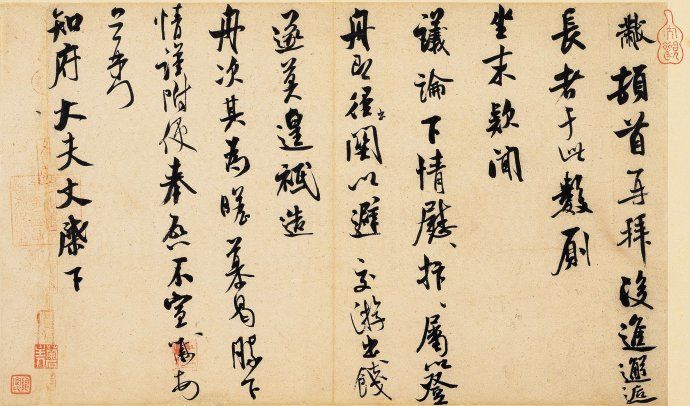 黻頓首再拜後進邂逅
長者于此數廁
坐末款聞
議論下情慰、抃、屬以登
舟即徑出關以避交游出餞
遂莫遑祗造
舟次其為瞻慕曷勝下
情謹附便奉啓不宣
知府大夫丈棨下